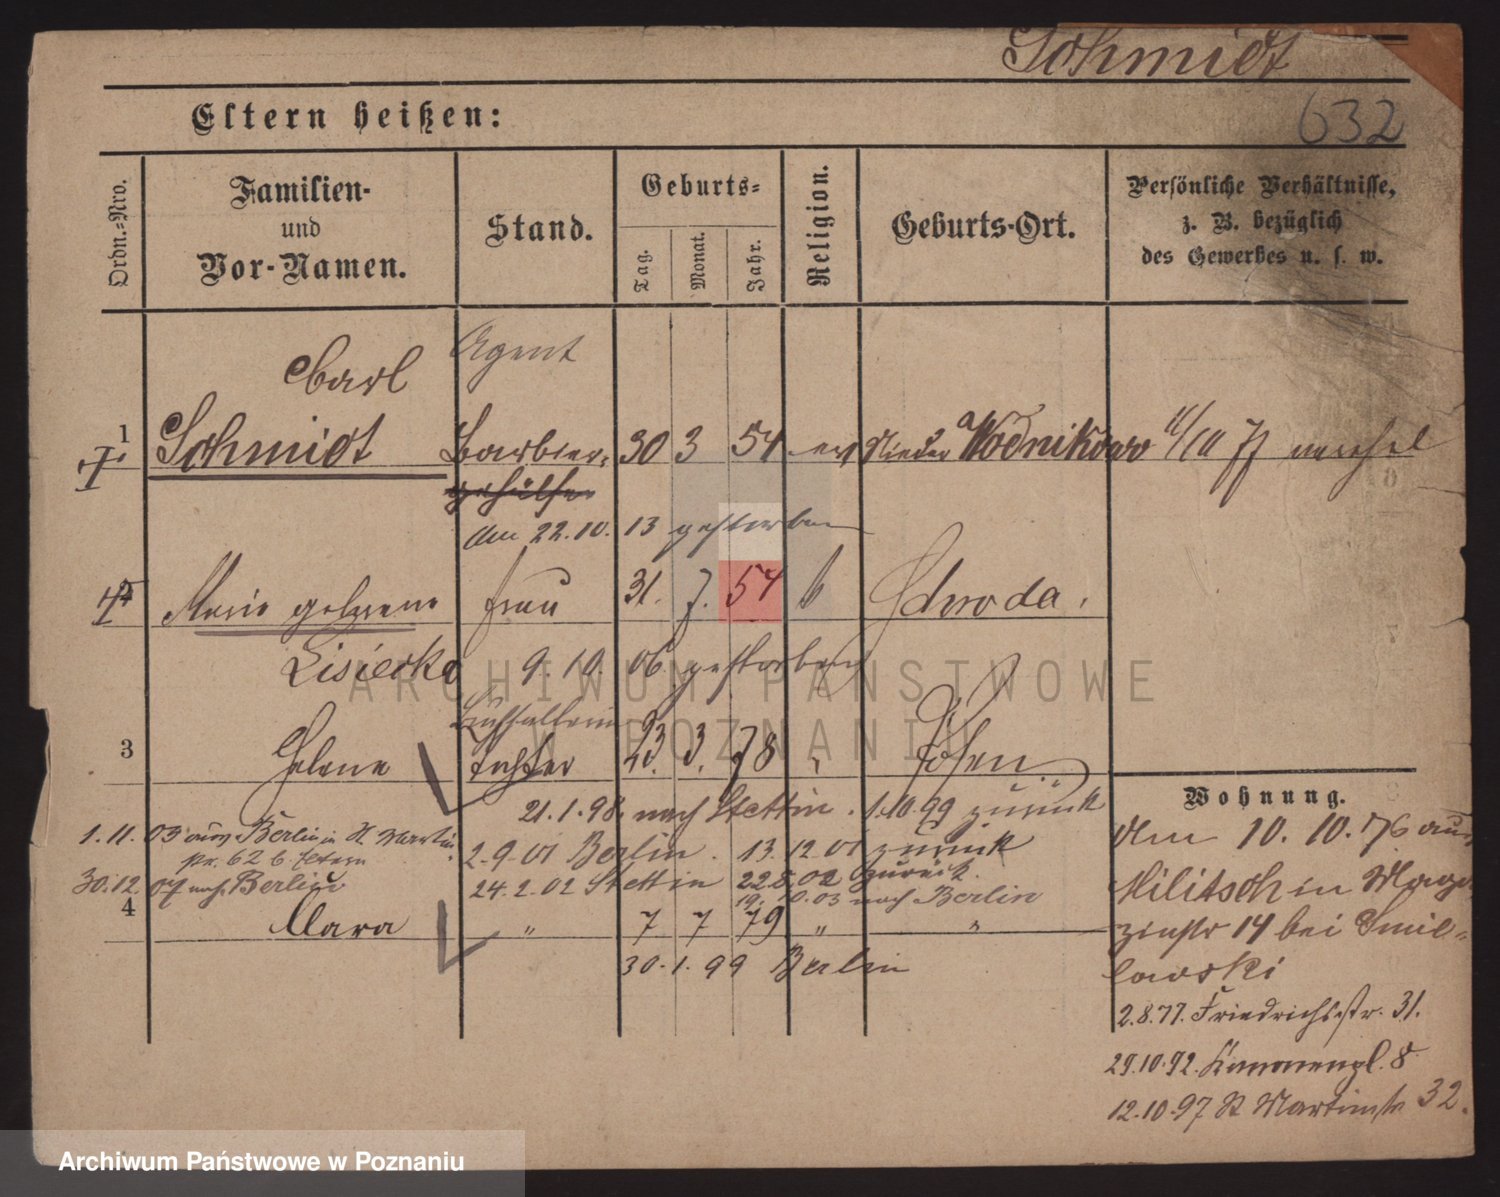 Schmidt
632
Eltern heißen:
Ordn.-Nro.
Familien-
und
Vor-Namen.
Stand.
Geburts-
Tag.
Monat.
Jahr.
Religion.
Geburts-Ort.
Persönliche Verhältnisse,
z. B. bezüglich
des Gewerbes u. s. w.
Carl
Agent
1
Schmidt
Barbier
30 3 54
ev
Nieder Wodnikowo
11/10 77
gehülfe
Am 22.10. 13 gestorben
2
Marie geborene
Frau
31. 7. 54
k
Schroda.
Lisiecka
9. 10. 06 gestorben
3
Helene
Tochter
23. 3. 78
"
Posen
21.1.98. nach Stettin. 1.10.99 zurück
1.11. 03 aus Berlin in St. Martin
str. 62 b Eltern
2.9.01 Berlin. 13.12.01 zurück
30.12. 07 nach Berlin
24.2.02 Stettin 22.8.02 zurück.
19. 10.03 nach Berlin
4
Clara
"
7 7 79
"
"
30.1.99 Berlin
Wohnung.
Am 10. 10. 76 aus
Militsch in Maga-
zinstr 14 bei Smie-
lowski
2.8.77. Friedrichsstr. 31.
29.10.92. Kanonenpl. 8
12.10.97 St Martinstr 32.
ARCHIWUM PAŃSTWOWE
W POZNANIU
Archiwum Państwowe w Poznaniu